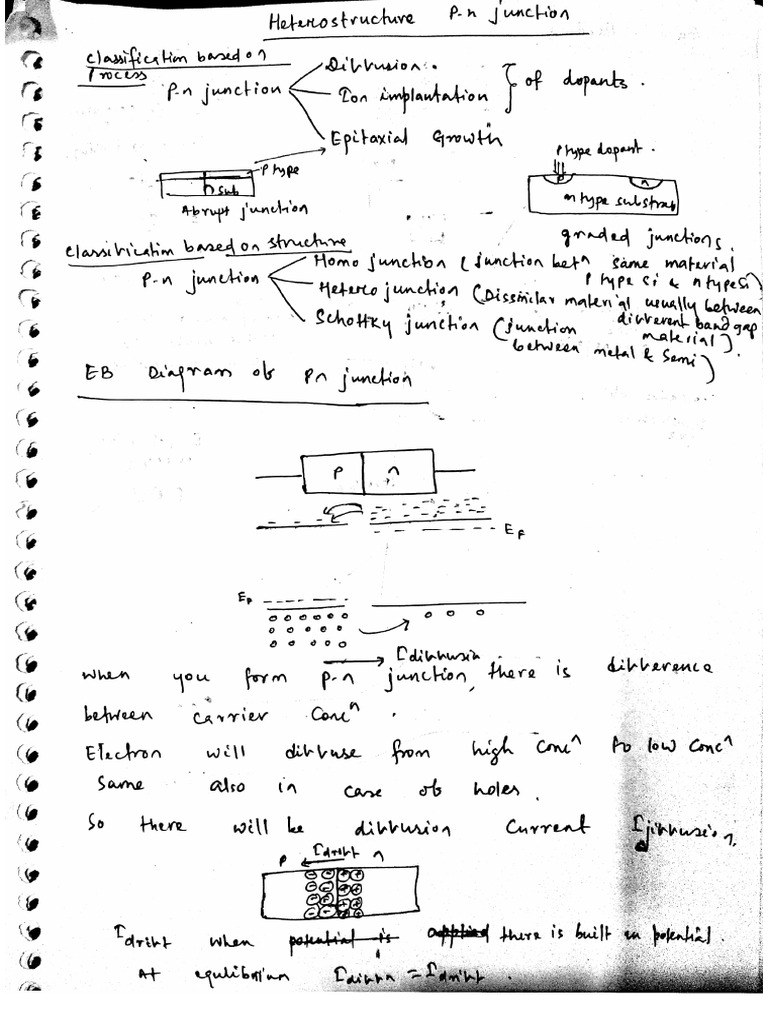 Heterostructure P-n junction
Classification based on
Process
P-n junction
Diffusion.
Ion implantation
of dopants.
Epitaxial Growth
P type
n sub
Abrupt junction
P type dopant.
P
n
n type substrat
graded junctions.
Classification based on structure
P-n junction
Homo junction (junction betn same material
P type Si & n type Si)
Hetero junction (Dissimilar material usually between
different band gap
material).
Schottky junction (junction
between metal & Semi)
EB Diagram of Pn junction
P n
EF
EF
Idiffusin
When you form p-n junction, there is difference
between carrier Concn.
Electron will diffuse from high Concn to low Concn
Same also in case of holes.
So there will be diffusion Current Idiffusion.
P Idrift n
Idrift when potential is applied there is built in potential.
At equlibrium Idiffn = Idrift.